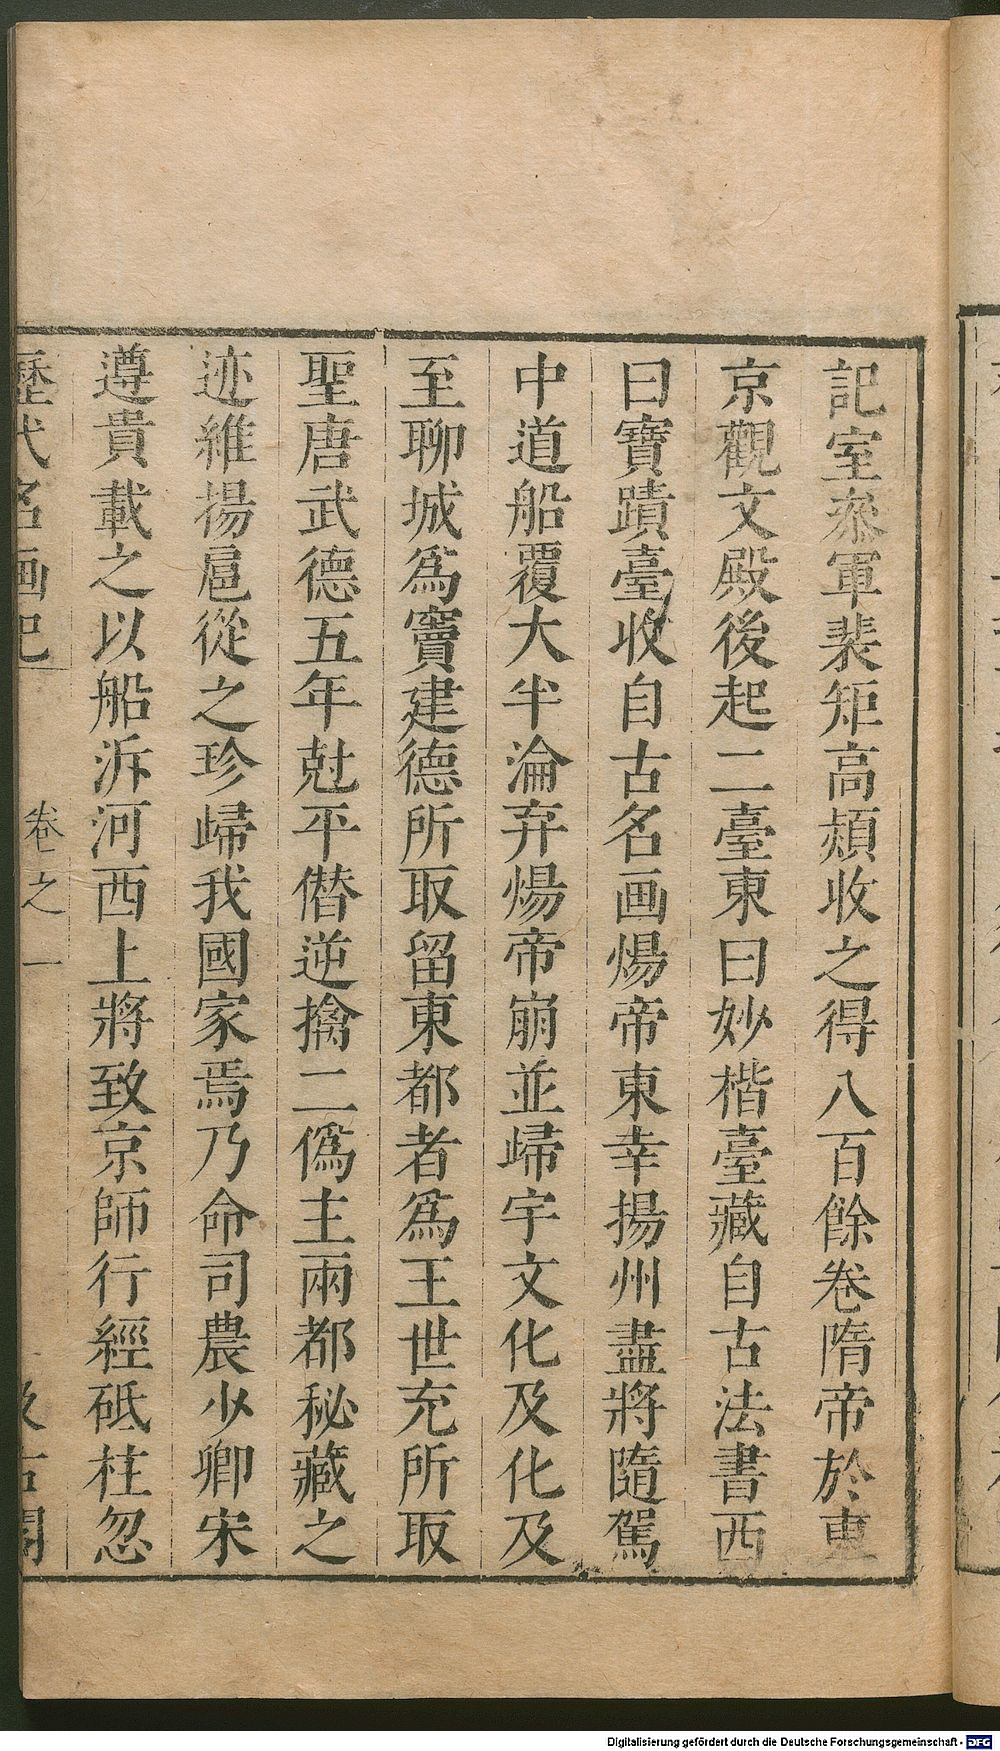 記室叅軍裴矩高熲收之得八百餘卷隋帝於東
京觀文殿後起二臺東曰妙楷臺藏自古法書西
曰寶蹟臺收自古名画煬帝東幸揚州盡將隨駕
中道船覆大半淪弃煬帝崩並歸宇文化及化及
至聊城爲竇建德所取留東都者爲王世充所取
聖唐武德五年尅平僣逆擒二僞主兩都秘藏之
迹維揚扈從之珍歸我國家焉乃命司農少卿宋
遵貴載之以船泝河西上將致京師行經砥柱忽
歷代名画記 卷之一 汲古閣
Digitalisierung gefördert durch die Deutsche Forschungsgemeinschaft - DFG